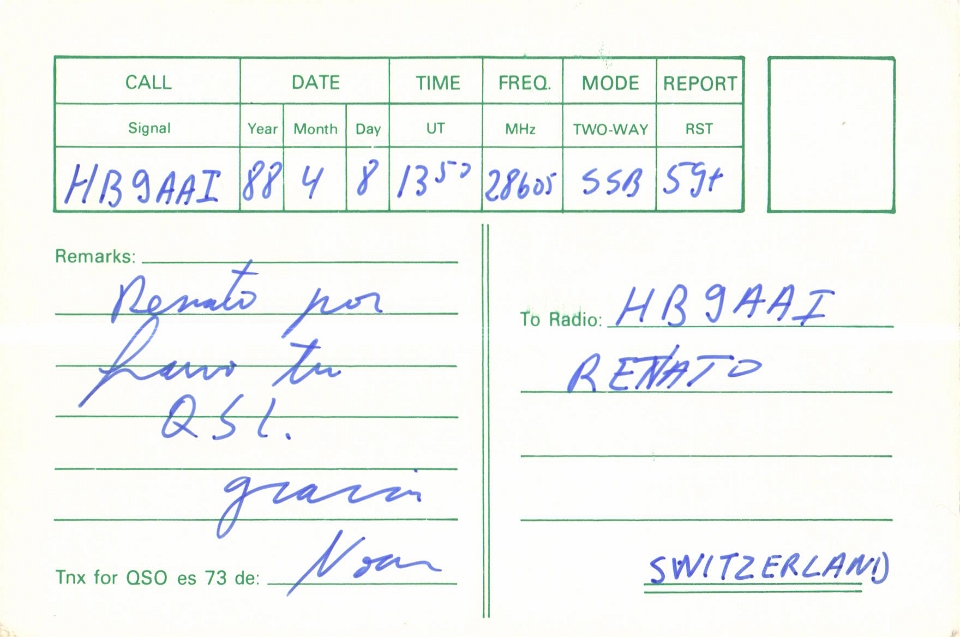 CALL DATE TIME FREQ. MODE REPORT
Signal Year Month Day UT MHz TWO-WAY RST
HB9AAI 88 4 8 1350 28605 SSB 59+
Remarks:
Renato por
favo tu
QSL.
gracias
Tnx for QSO es 73 de:
To Radio: HB9AAI
RENATO
SWITZERLAND